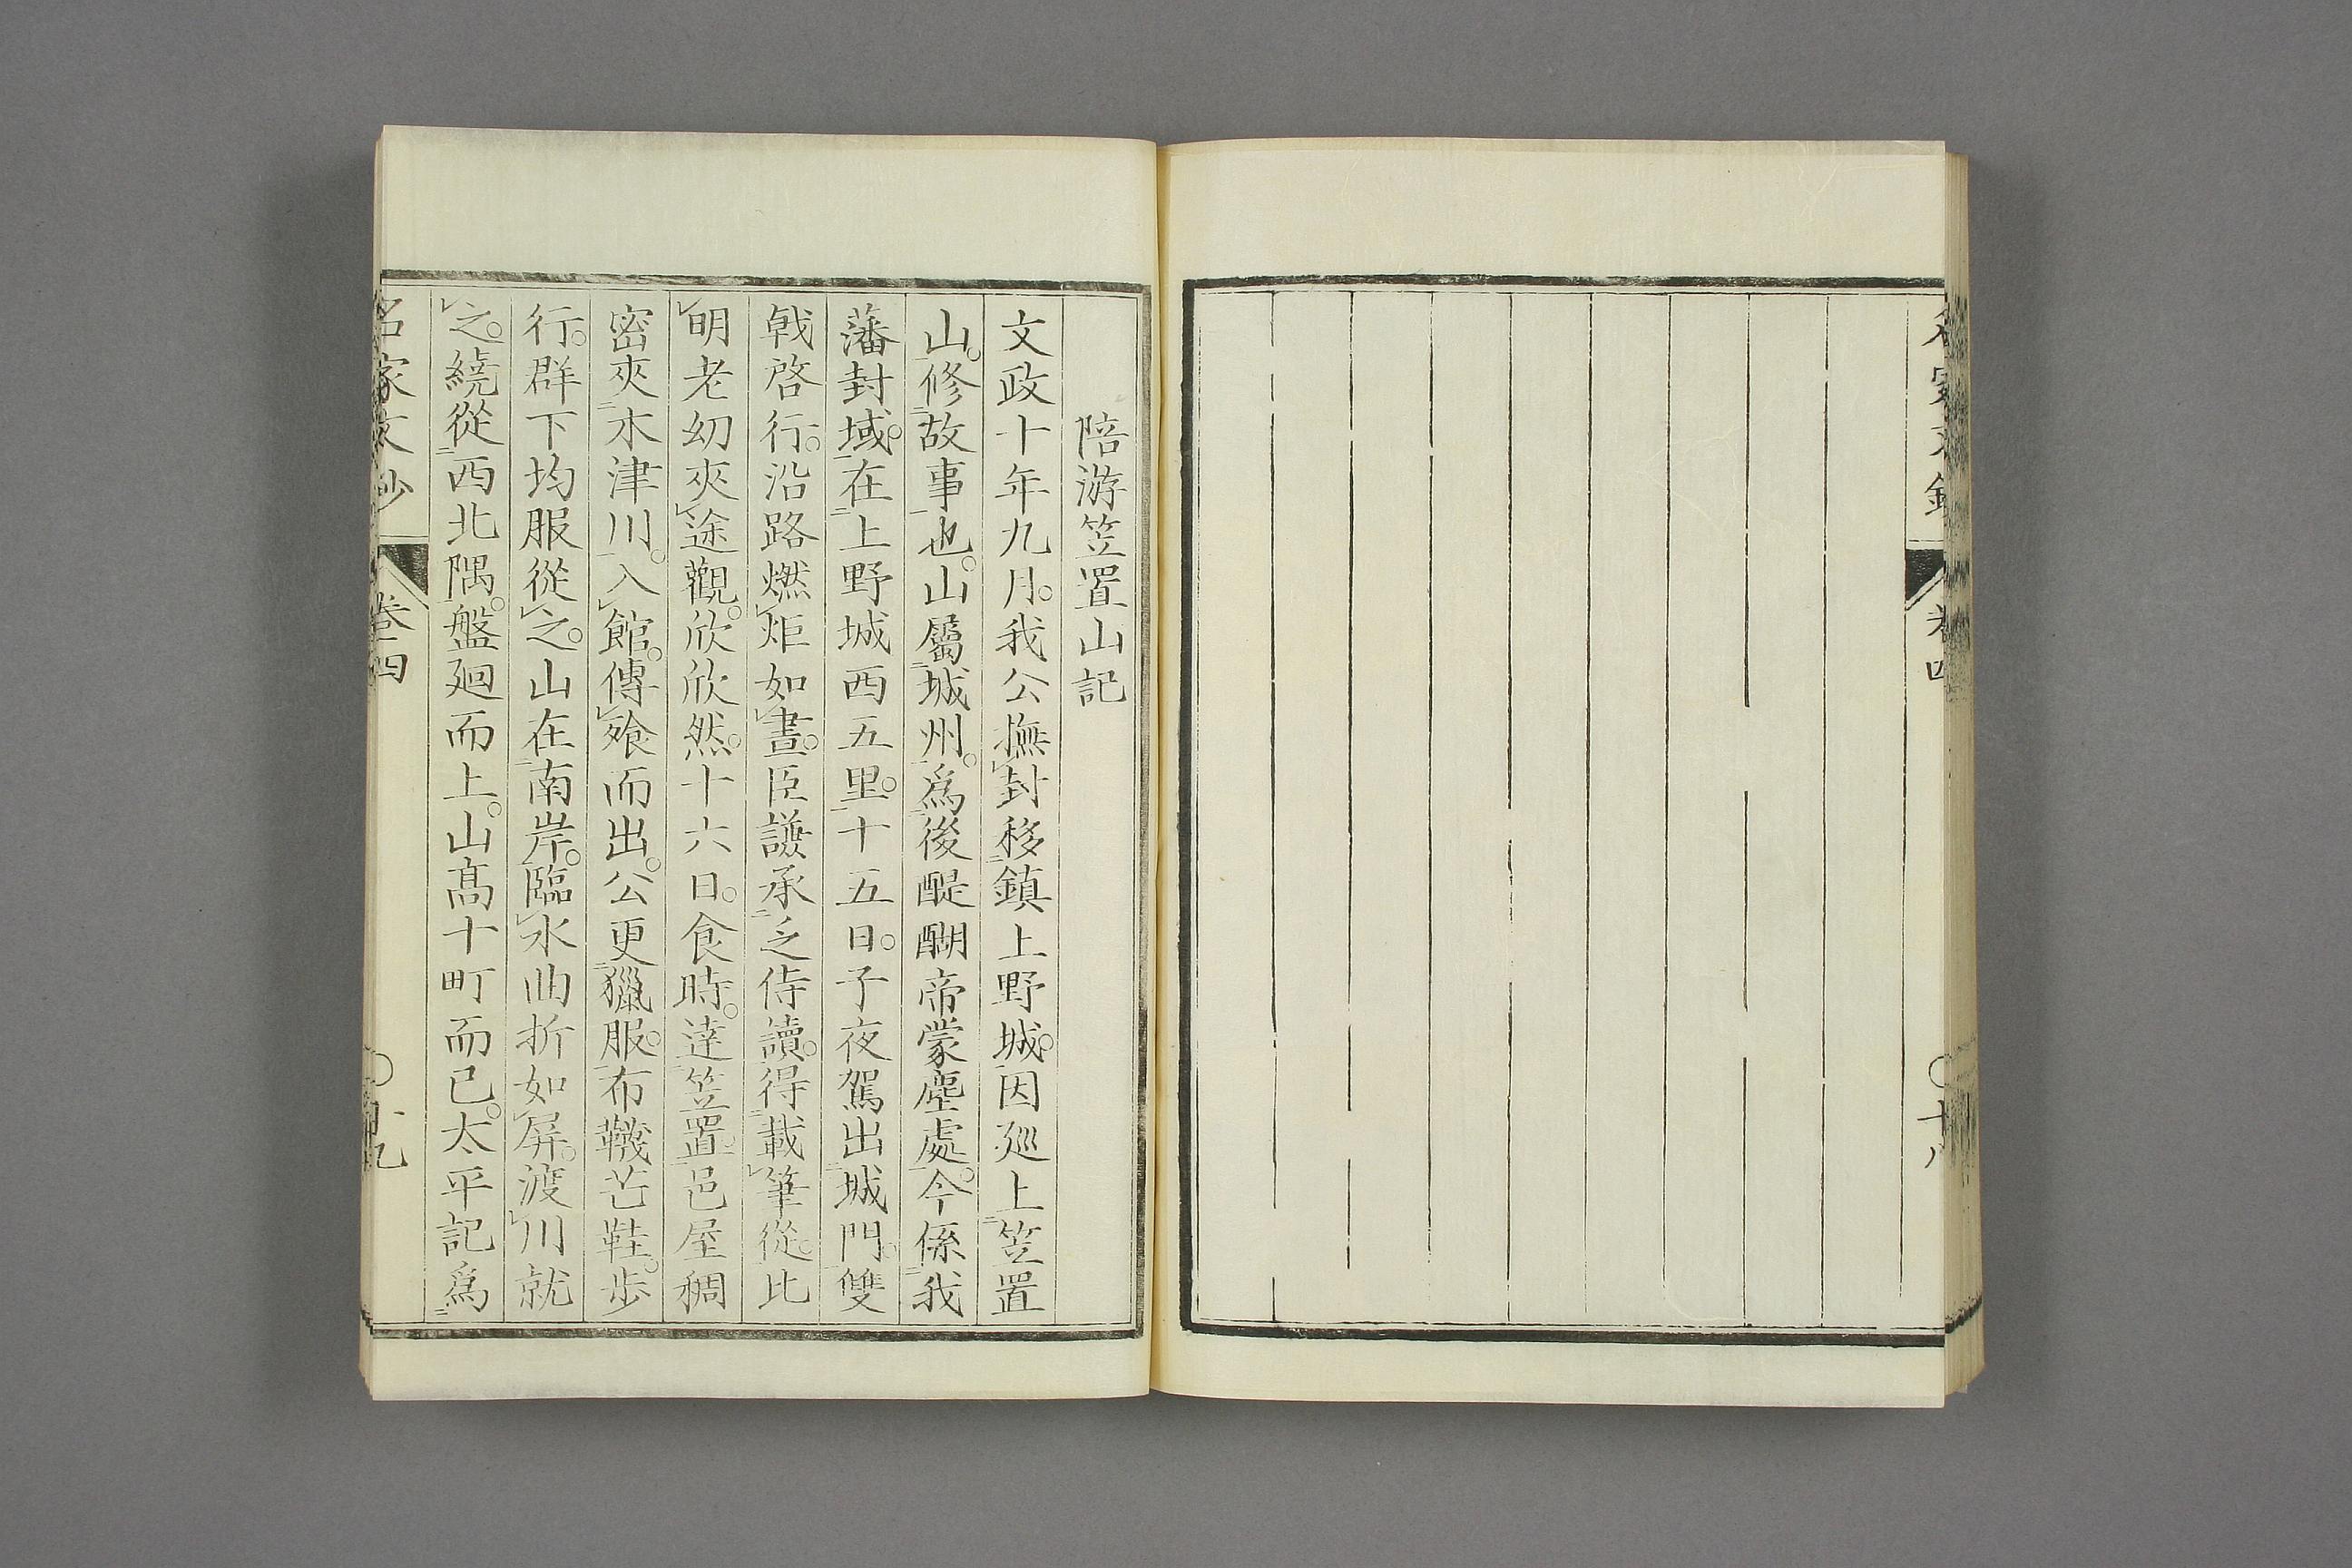 卷四
十八
陪游笠置山記
文政十年九月。我公撫封移鎮上野城。因廵上笠置
山。修故事也。山屬城州。爲後醍醐帝蒙塵處。今係我
藩封域。在上野城西五里。十五日。子夜駕出城門。雙
戟啓行。沿路燃炬如晝。臣謙承乏侍讀。得載筆從。比
明老幼夾途觀。欣欣然。十六日。食時。達笠置。邑屋稠
密夾木津川。入館。傳飧而出。公更獵服。布韈芒鞋。步
行。群下均服從之。山在南岸。臨水曲折如屏。渡川就
之。繞從西北隅。盤廻而上。山髙十町而已。太平記爲
名家文鈔
卷四
十九